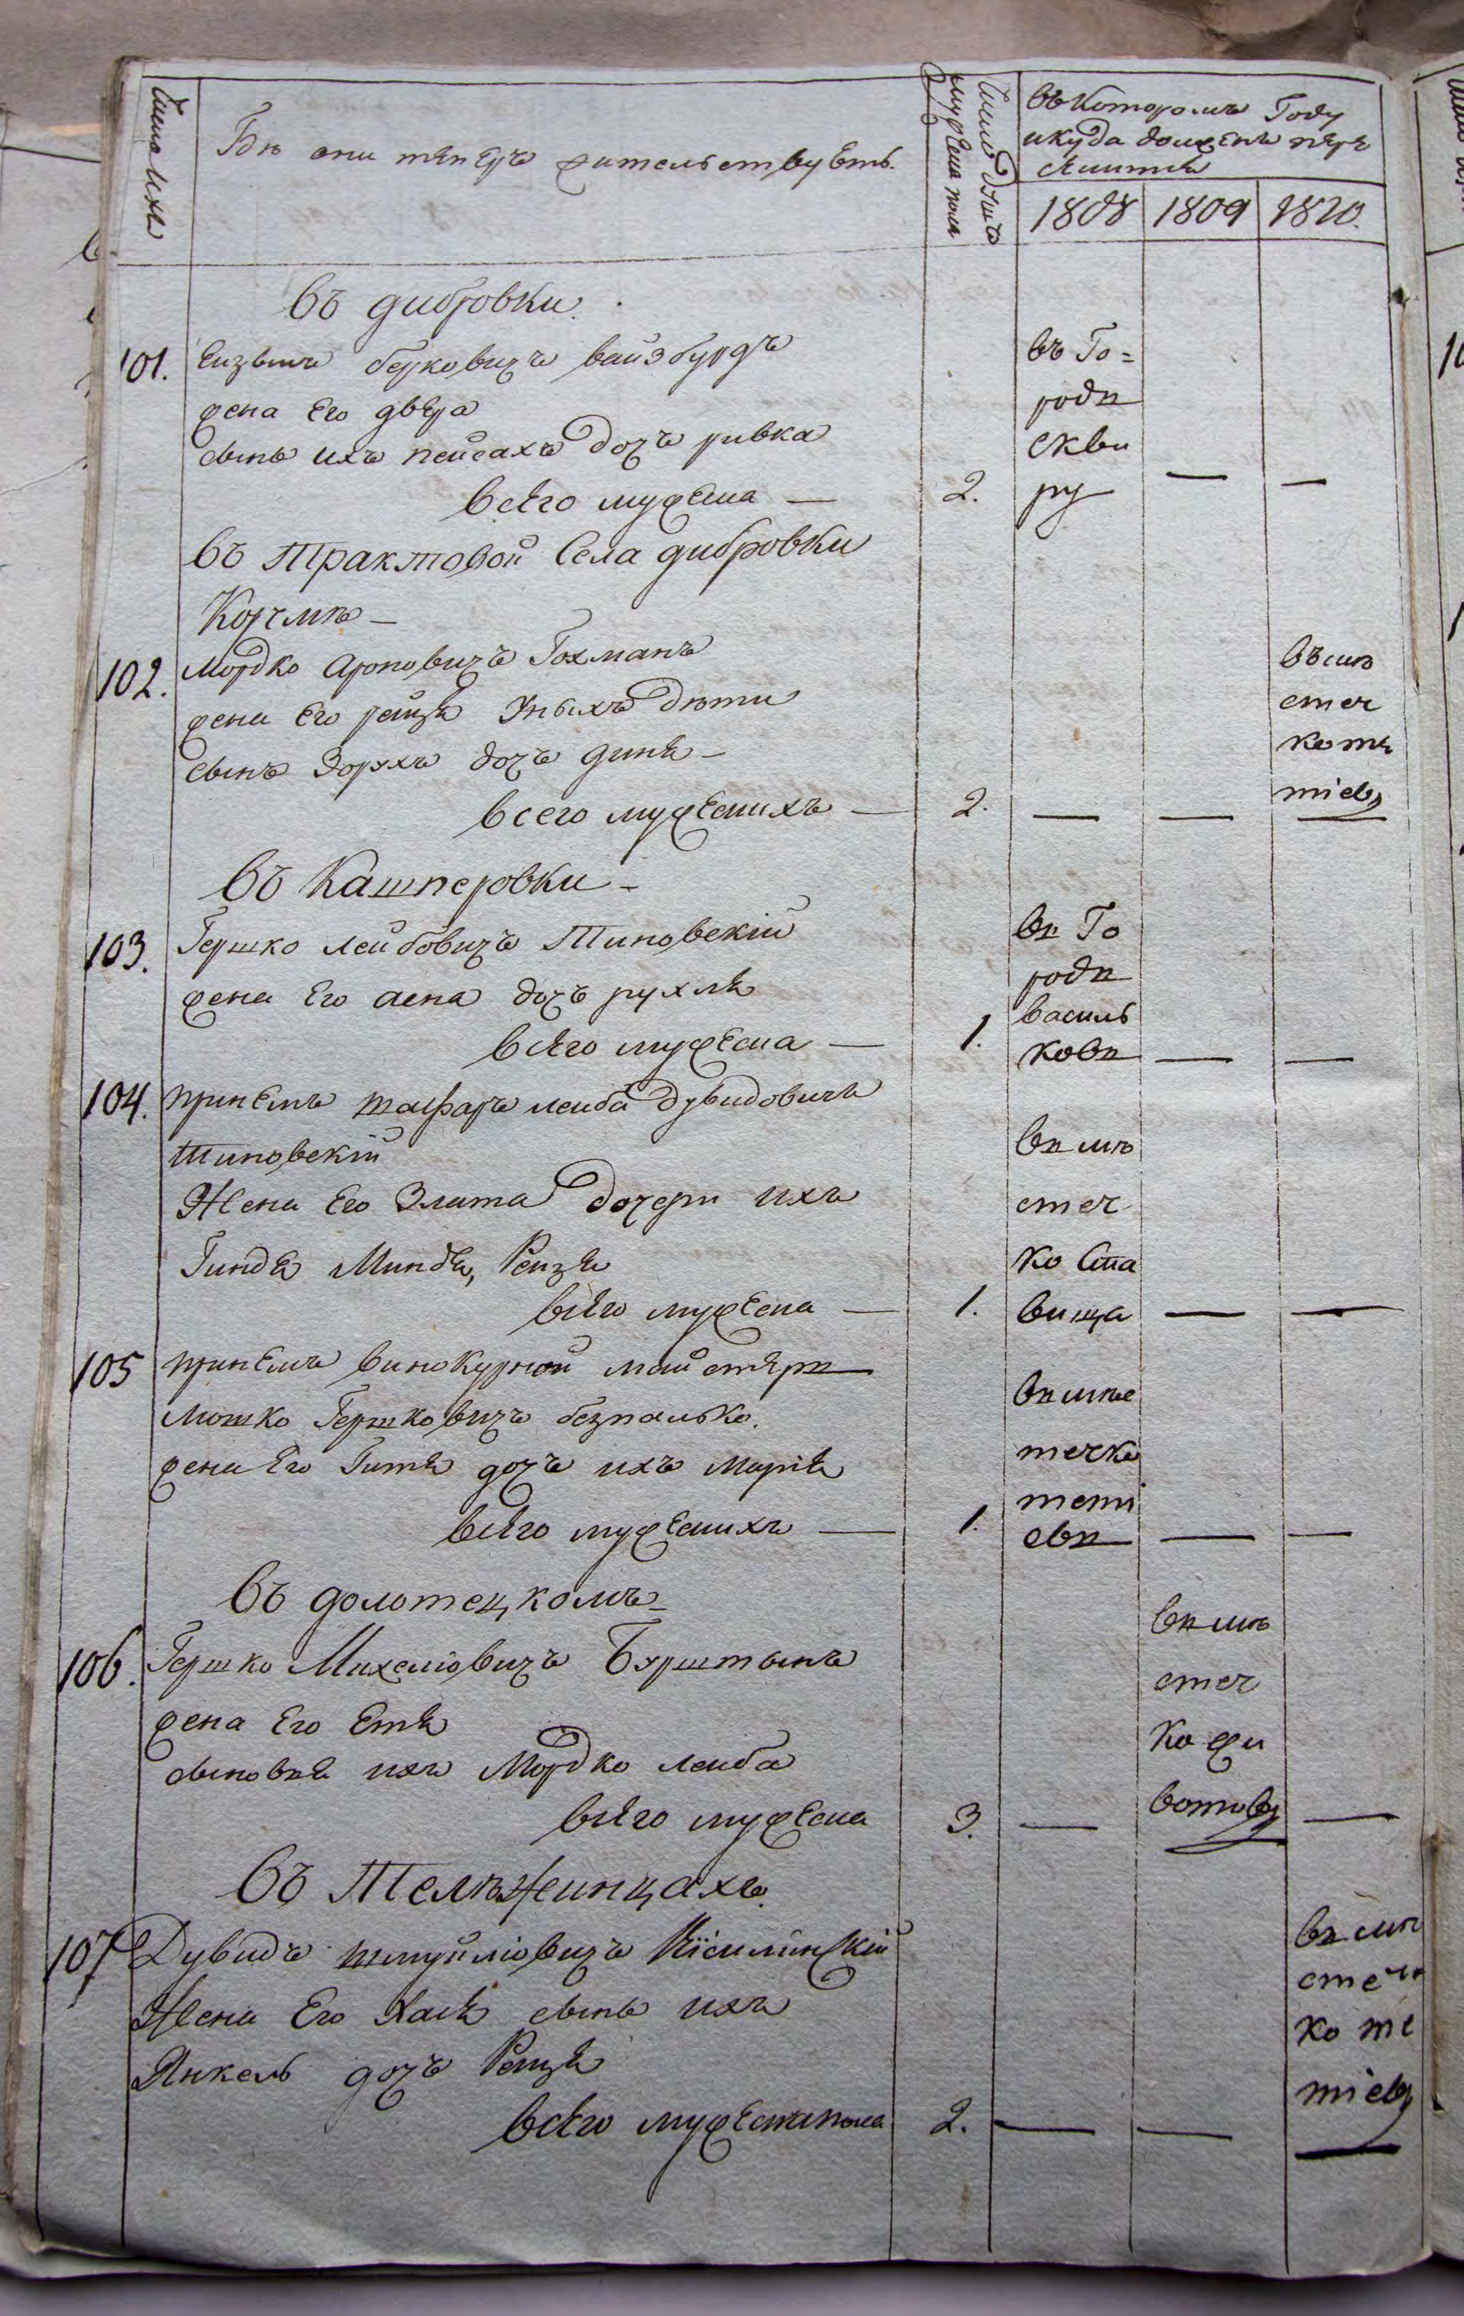 Число ихъ
Где они теперъ жительствуетъ
Число душъ
мужеска пола
въ которомъ Году
и куда долженъ пере
селитця
1808 1809 1810.
въ дибровки
101. беркович вайзбурдъ
жена Его двера
сынъ ихъ пейсахъ дочъ ривка
всего мужеска — 2.
въ Го=
роде
скви
ру — —
въ Трактовой Села дибровки
Корчме —
102. Мордко Ароновичъ Гохманъ
жена Его рейзя Уныхъ дети
сынъ Борухъ дочъ диня —
всего мужескихъ — 2. — —
въ ме
стеч
ко те
тіев
въ Кашперовки —
103. Гершко Лейбовичъ Тиновскій
жена Его асна дочъ рухля
всего мужеска — 1.
въ Го
роде
василь
кове — —
104. при немъ лейба Дувидовичъ
Тиновскій
Жена Его Злата дочери ихъ
Гиндя Миндя, Рейзя
всего мужеска — 1.
в ме
стеч
ко Ста
вища — —
105 при немъ винокурной майстеръ
Мошко Гершковичъ безпалько.
жена Его Гитя дочъ ихъ марія
всего мужескихъ — 1.
в мѣс
течке
тети
еве — —
въ долотецкомъ —
106. Гершко Михеліовичъ Бурштынъ
жена Его Етя
сыновя ихъ Мордко лейба
всего мужеска 3. —
в ме
стеч
ко жи
вотов —
въ Тележинцахъ
107 Дувидъ шмуйліовичъ
Жена Его Хая сынъ ихъ
Янкель дочъ Рейзя
всего мужеска пола 2. — —
в ме
стеч
ко те
тіев